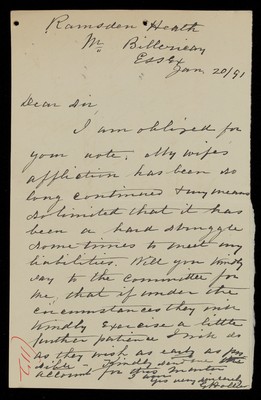 Ramsden Heath
Nr Billericay
Essex
Jan. 20/91
Dear Sir,
I am obliged for
your note. My wife's
affliction has been so
long continued & my means
so limited that it has
been a hard struggle
sometimes to meet my
liabilities. Will you kindly
say to the Committee for
me, that if under the
circumstances they will
kindly exercise a little
further patience I will do
as they wish as early as pos
sible. Kindly send me
account for this quarter
I am
Yrs very sincerely